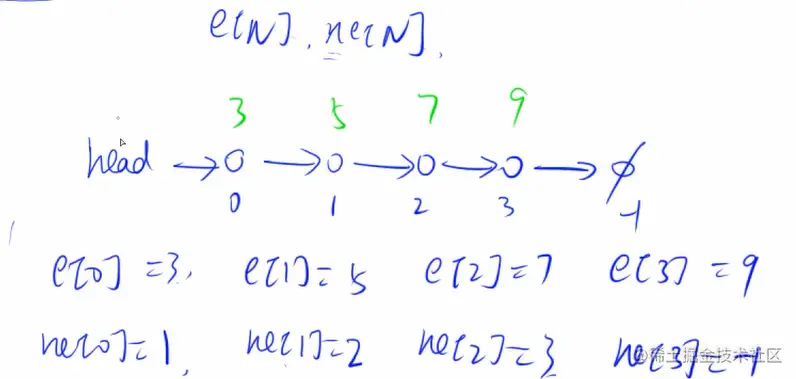 e[N], ne[N],
3 5 7 9
head → o → o → o → o → ∅
0 1 2 3 -1
e[0]=3, e[1]=5 e[2]=7 e[3]=9
ne[0]=1, ne[1]=2 ne[2]=3 ne[3]=-1
@稀土掘金技术社区